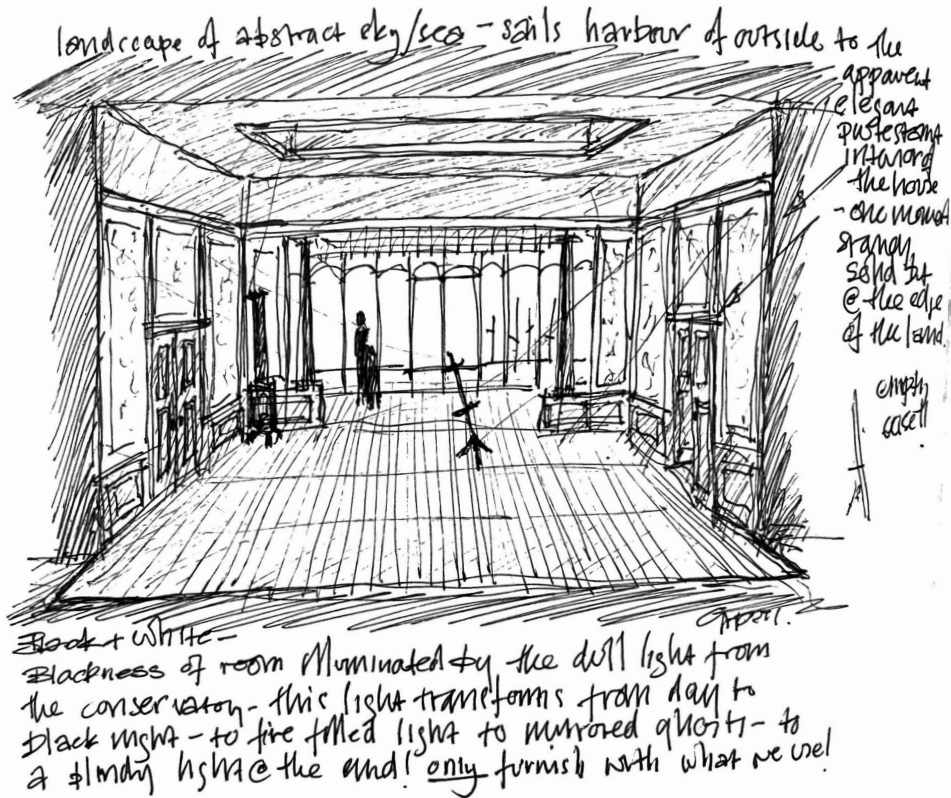 landscape of abstract sky/sea - sails harbour of outside to the
apparent
elegant
protestant
interior of
the house
- one moment
standing
sand bit
@ the edge
of the land
empty
easel!
Black + White -
Blackness of room illuminated by the dull light from
the conservatory - this light transforms from day to
black night - to fire filled light to mirrored ghosts - to
a light @ the end! only furnish with what we use!